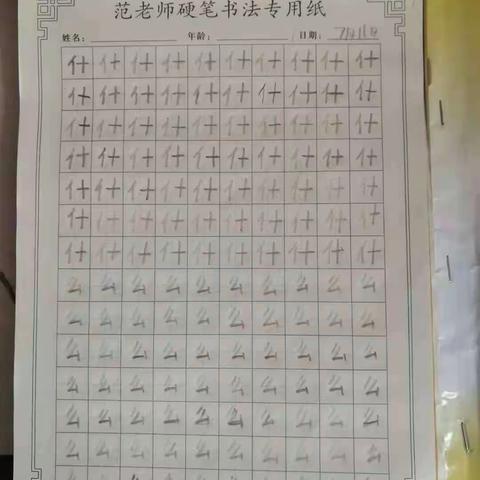 范老师硬笔书法专用纸
姓名： 年龄： 日期：
什什什什什什什什什什
什什什什什什什什什什
什什什什什什什什什什
什什什什什什什什什什
什什什什什什什什什什
什什什什什什什什什什
什什什什什什什什什什
么么么么么么么么么么
么么么么么么么么么么
么么么么么么么么么么
么么么么么么么么么么
么么么么么么么么么么
么么么么么么么么么么